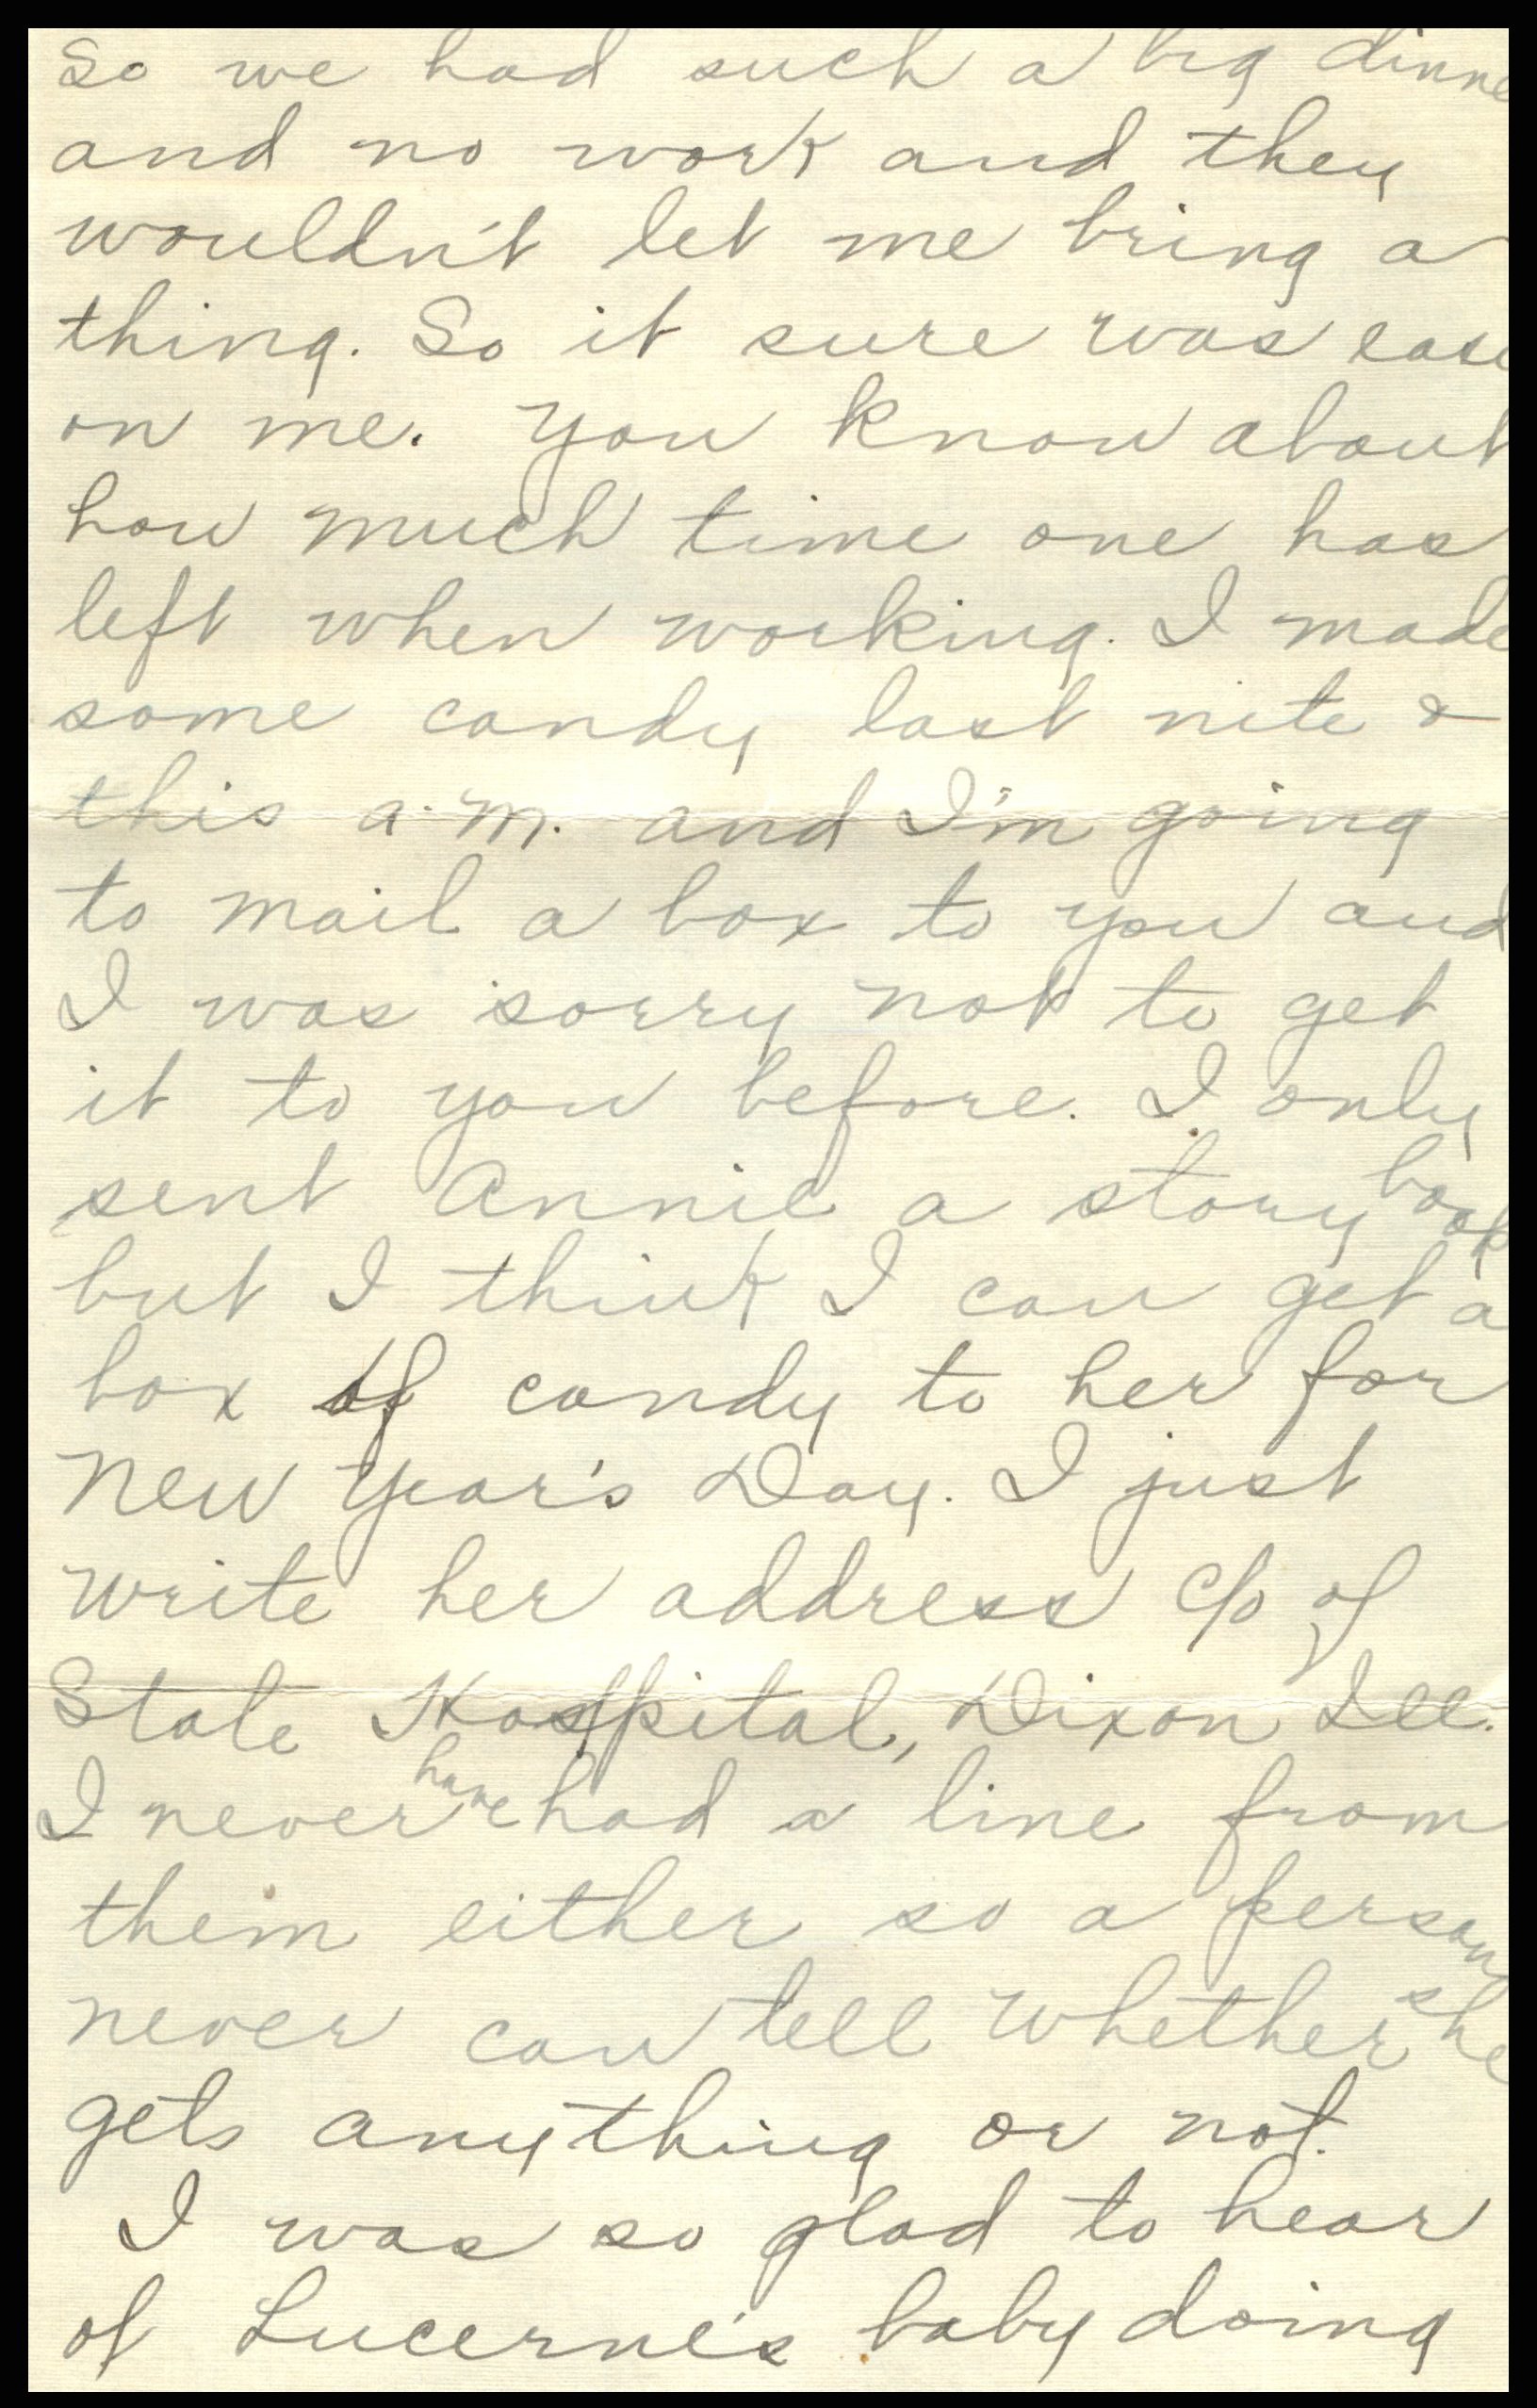 So we had such a big dinne
and no work and they
wouldn't let me bring a
thing. So it sure was easy
on me. You know about
how much time one has
left when working. I made
some candy last nite &
this a.m. and I'm going
to mail a box to you and
I was sorry not to get
it to you before. I only
sent Annie a story book
but I think I can get a
box of candy to her for
New Year's Day. I just
write her address c/o of
State Hospital, Dixon Ill.
I never have had a line from
them either so a person
never can tell whether she
gets anything or not.
I was so glad to hear
of Lucerne's baby doing